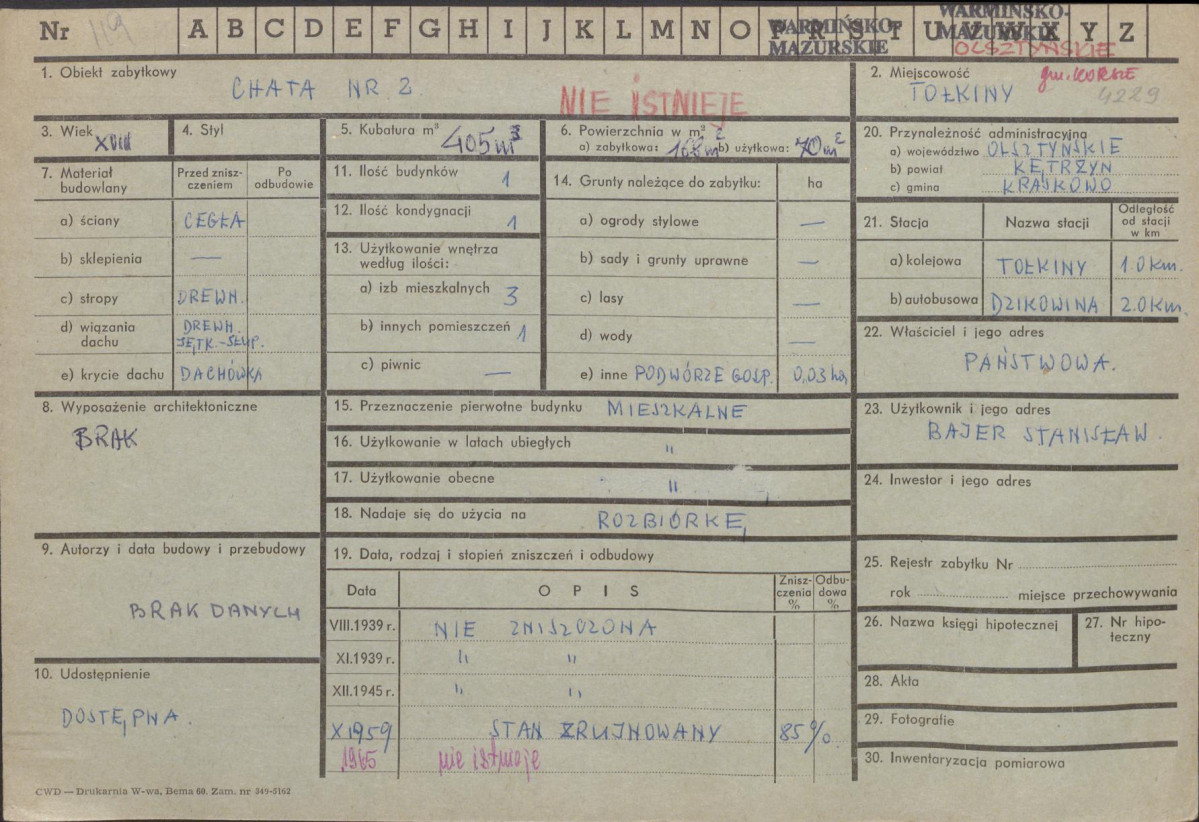 Nr 119 A B C D E F G H I J K L M N O P R S T U V W X Y Z
WARMIŃSKO-
MAZURSKIE
WARMIŃSKO-
MAZURSKIE
OLSZTYŃSKIE
1. Obiekt zabytkowy
CHATA NR 2
NIE ISTNIEJE
2. Miejscowość gm. KORSZE
TOŁKINY 4229
3. Wiek XVIII
4. Styl
5. Kubatura m³ 405 m³
6. Powierzchnia w m² 2
a) zabytkowa: 168 m b) użytkowa: 70 m²
7. Materiał budowlany
Przed zniszczeniem
Po odbudowie
a) ściany CEGŁA
b) sklepienia —
c) stropy DREWN.
d) wiązania dachu DREWN. JĘTK.-SŁUP.
e) krycie dachu DACHÓWKA
8. Wyposażenie architektoniczne
BRAK
9. Autorzy i data budowy i przebudowy
BRAK DANYCH
10. Udostępnienie
DOSTĘPNA.
11. Ilość budynków 1
12. Ilość kondygnacji 1
13. Użytkowanie wnętrza
według ilości:
a) izb mieszkalnych 3
b) innych pomieszczeń 1
c) piwnic —
14. Grunty należące do zabytku: ha
a) ogrody stylowe —
b) sady i grunty uprawne —
c) lasy —
d) wody —
e) inne PODWÓRZE GOSP. 0,03 ha
15. Przeznaczenie pierwotne budynku MIESZKALNE
16. Użytkowanie w latach ubiegłych "
17. Użytkowanie obecne "
18. Nadaje się do użycia na ROZBIÓRKĘ
19. Data, rodzaj i stopień zniszczeń i odbudowy
Data OPIS Zniszczenia % Odbudowa %
VIII.1939 r. NIE ZNISZCZONA
XI.1939 r. " "
XII.1945 r. " "
X 1959 STAN ZRUJNOWANY 85%.
1965 nie istnieje
20. Przynależność administracyjna
a) województwo OLSZTYŃSKIE
b) powiat KĘTRZYN
c) gmina KRASKOWO
21. Stacja Nazwa stacji Odległość od stacji w km
a) kolejowa TOŁKINY 1.0 km.
b) autobusowa DZIKOWINA 2.0 km.
22. Właściciel i jego adres
PAŃSTWOWA.
23. Użytkownik i jego adres
BAJER STANISŁAW.
24. Inwestor i jego adres
25. Rejestr zabytku Nr
rok miejsce przechowywania
26. Nazwa księgi hipotecznej
27. Nr hipoteczny
28. Akta
29. Fotografie
30. Inwentaryzacja pomiarowa
CWD — Drukarnia W-wa, Bema 60. Zam. nr 349-5162